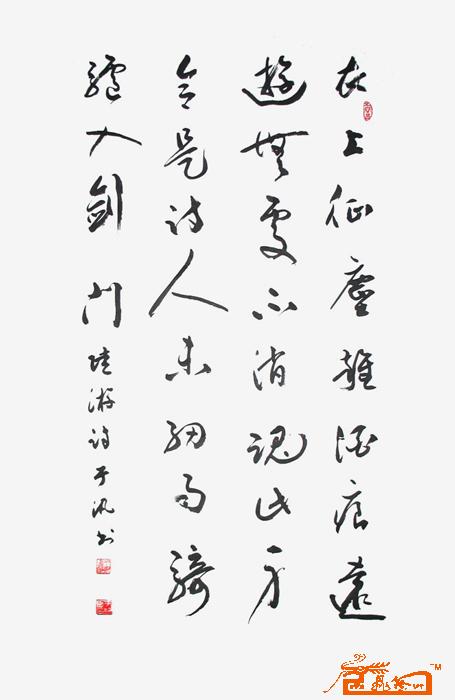 衣上征塵雜酒痕遠
遊無處不消魂此身
合是詩人未細雨騎
驢入劍門 陸游詩 書